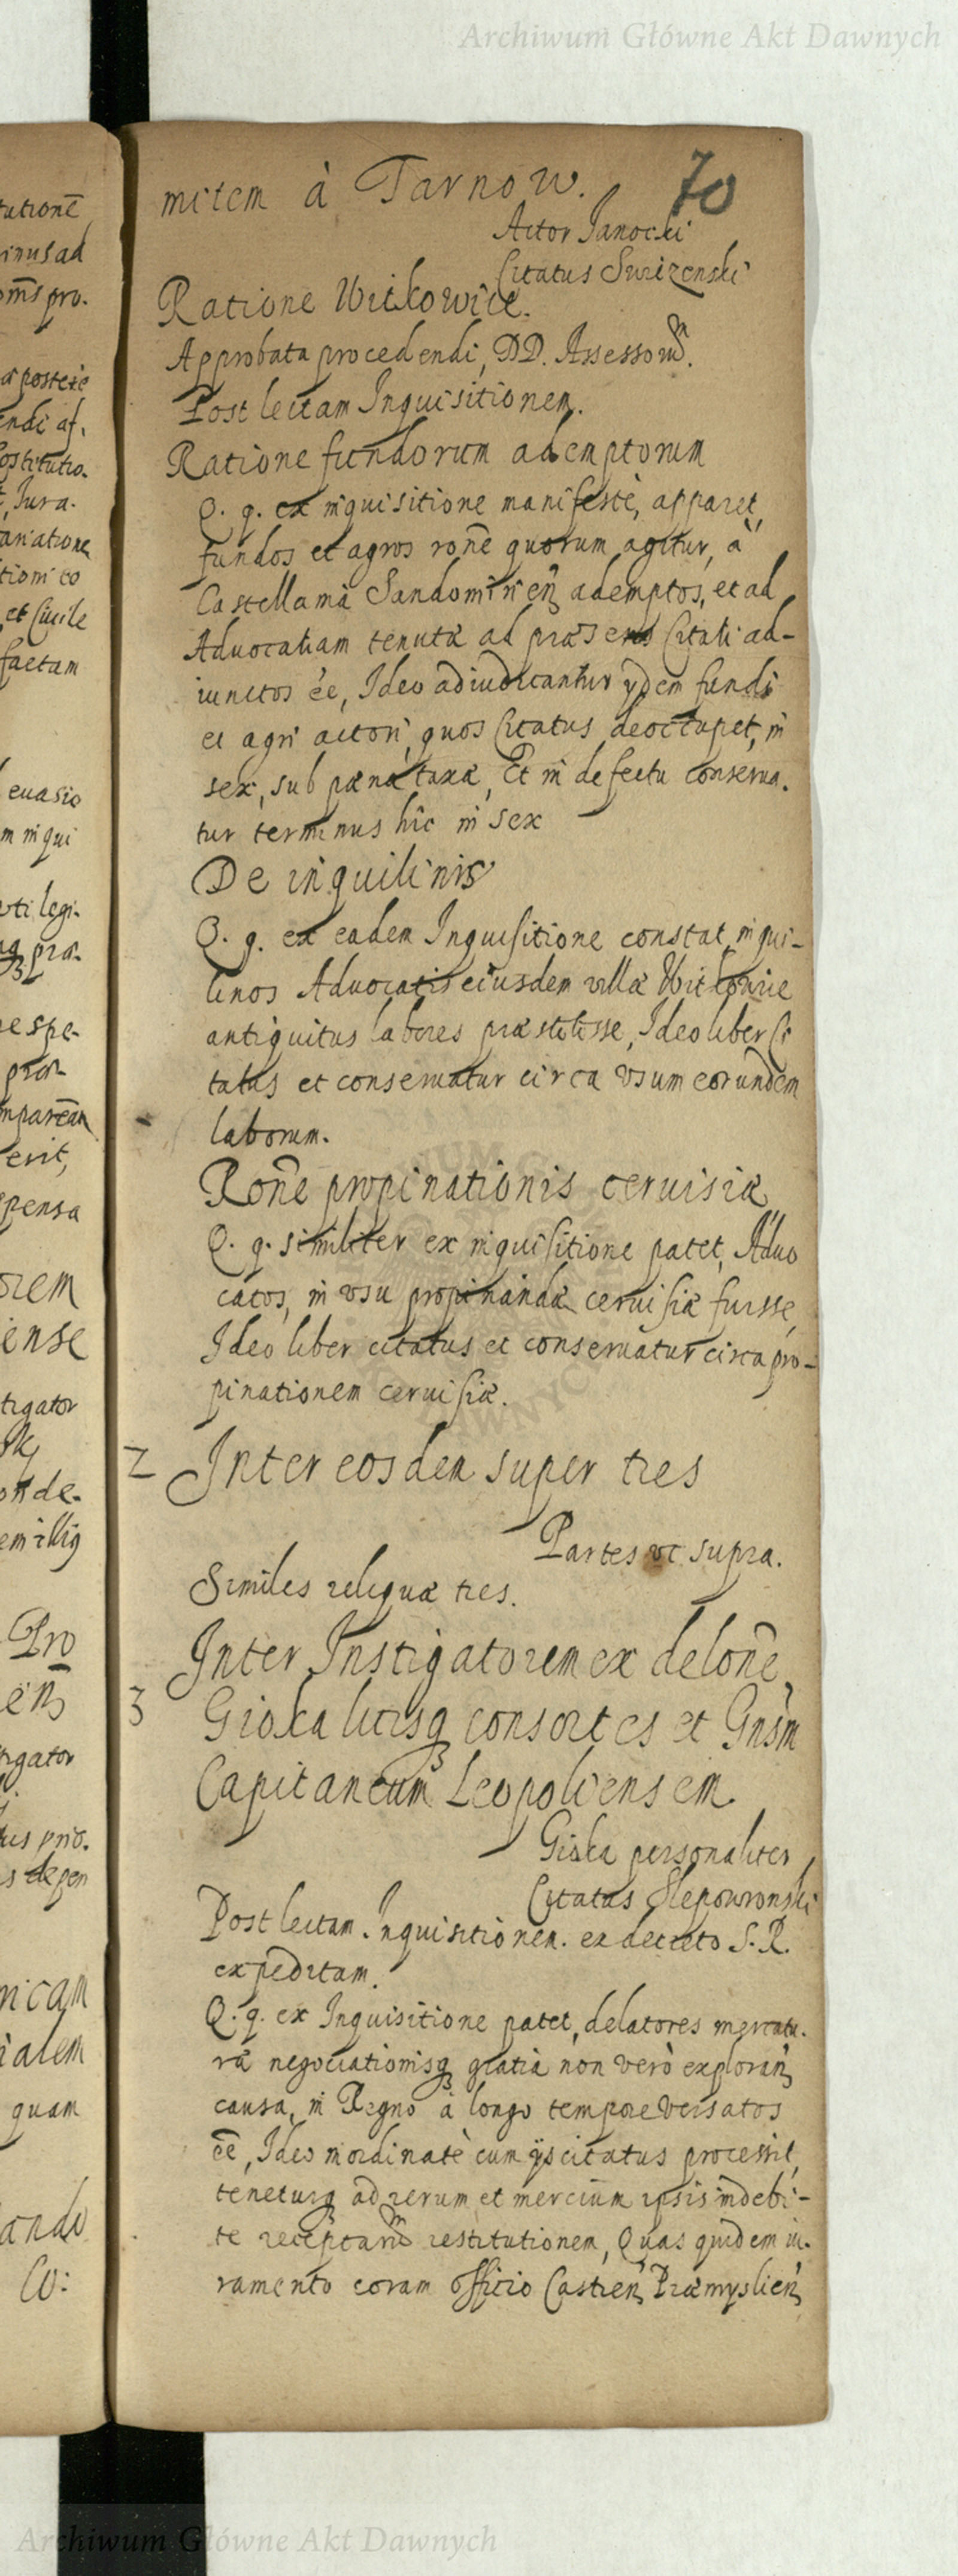 Archiwum Główne Akt Dawnych
70
mitem à Tarnow.
Actor Janocki
Citatus Swirzenski
Ratione Witkowice.
Approbata procedendi, DD. Assessorū.
Post lectam Inquisitionem.
Ratione fundorum ademptorum
Q. q. ex inquisitione manifestè, apparet,
fundos et agros rōne quorum agitur, à
Castellania Sandomirien̄ ademptos, et ad
Aduocatiam tenutæ ad præsens Citati ad-
iunctos ēe, Ideo adiudicantur ydem fundi
et agri actori, quos Citatus deoccupet, in
sex, sub pœna taxæ, Et in defectu conserua-
tur terminus hîc in sex
De inquilinis
Q. q. ex eadem Inquisitione constat, inqui-
linos Aduocatis eiusdem villæ Witkowice
antiquitus labores præstitisse, Ideo liber Ci
tatus et conseruatur circa vsum eorundem
laborum.
Rōne propinationis ceruisiæ
Q. q. similiter ex inquisitione patet, Aduo
catos, in vsu propinandæ ceruisiæ fuisse,
Ideo liber citatus et conseruatur circa pro-
pinationem ceruisiæ.
2 Inter eosdem super tres
Partes vt supra.
Similes reliquæ tres.
Inter Instigatorem ex delōne
3 Gioka litisq consortes et Gnsm
Capitaneum Leopoliensem
Gioka personaliter
Citatus Slepowronski
Post lectam Inquisitionem ex decreto S. R.
expeditam.
Q. q. ex Inquisitione patet, delatores mercatu-
ræ negociationisq gratia non verò exploran̄
causa, in Regno à longo tempore versatos
ēe, Ideo inordinatè cum ijs citatus processit,
teneturq ad rerum et mercium ipsis indebi-
te receptarū restitutionem, Quas quidem iu-
ramento coram officio Castren̄ Præmyslien̄
tutionē
inus ad
pro.
a postere
endi af.
Jura.
ariatione
tioni eo
et Ciuile
factam
euasio
m inqui
vti legi-
pra-
respe-
erit,
pensa
orem
iense
tigator
on de-
Pro
tigator
us prio.
s depen
nicam
ialem
quam
ando
Co:
Archiwum Główne Akt Dawnych